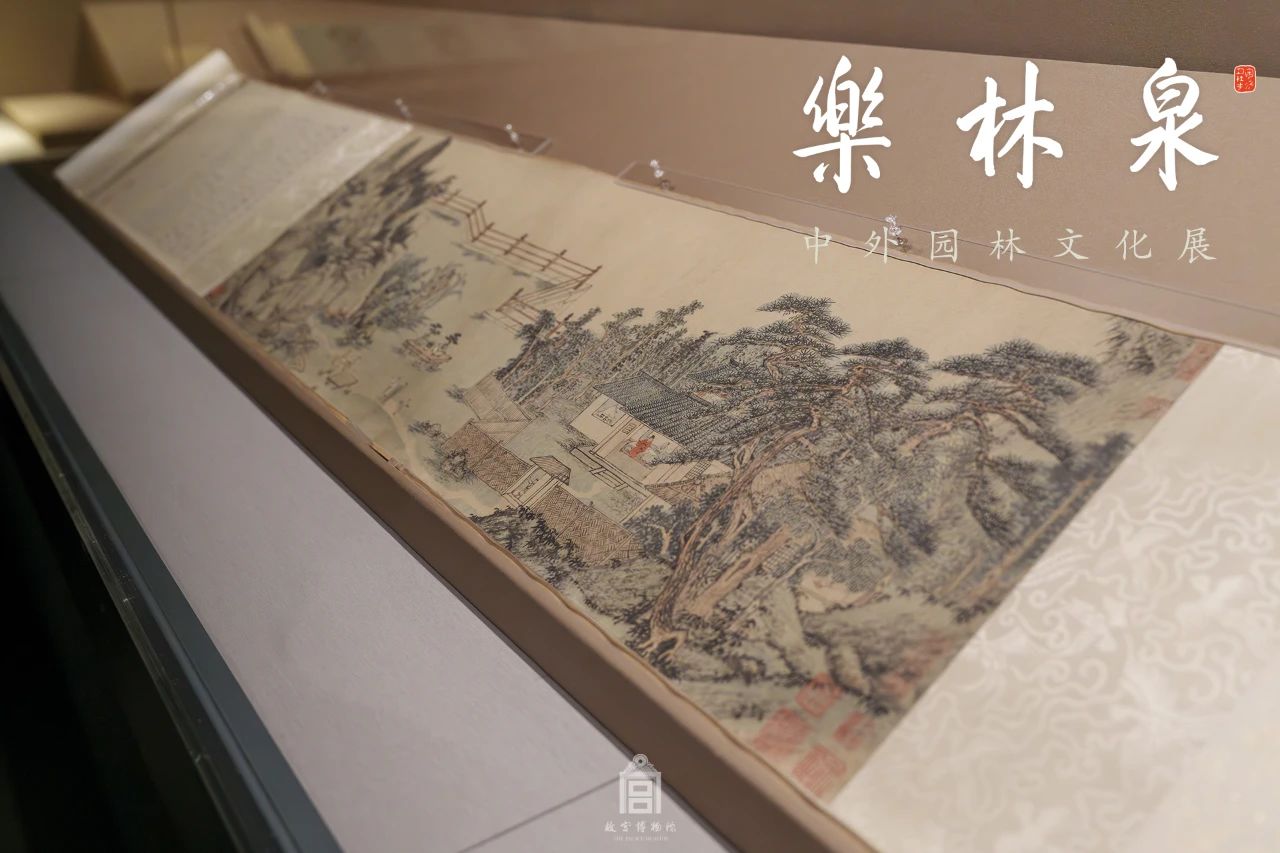 樂林泉
中外园林文化展
故宫博物院
THE PALACE MUSEUM